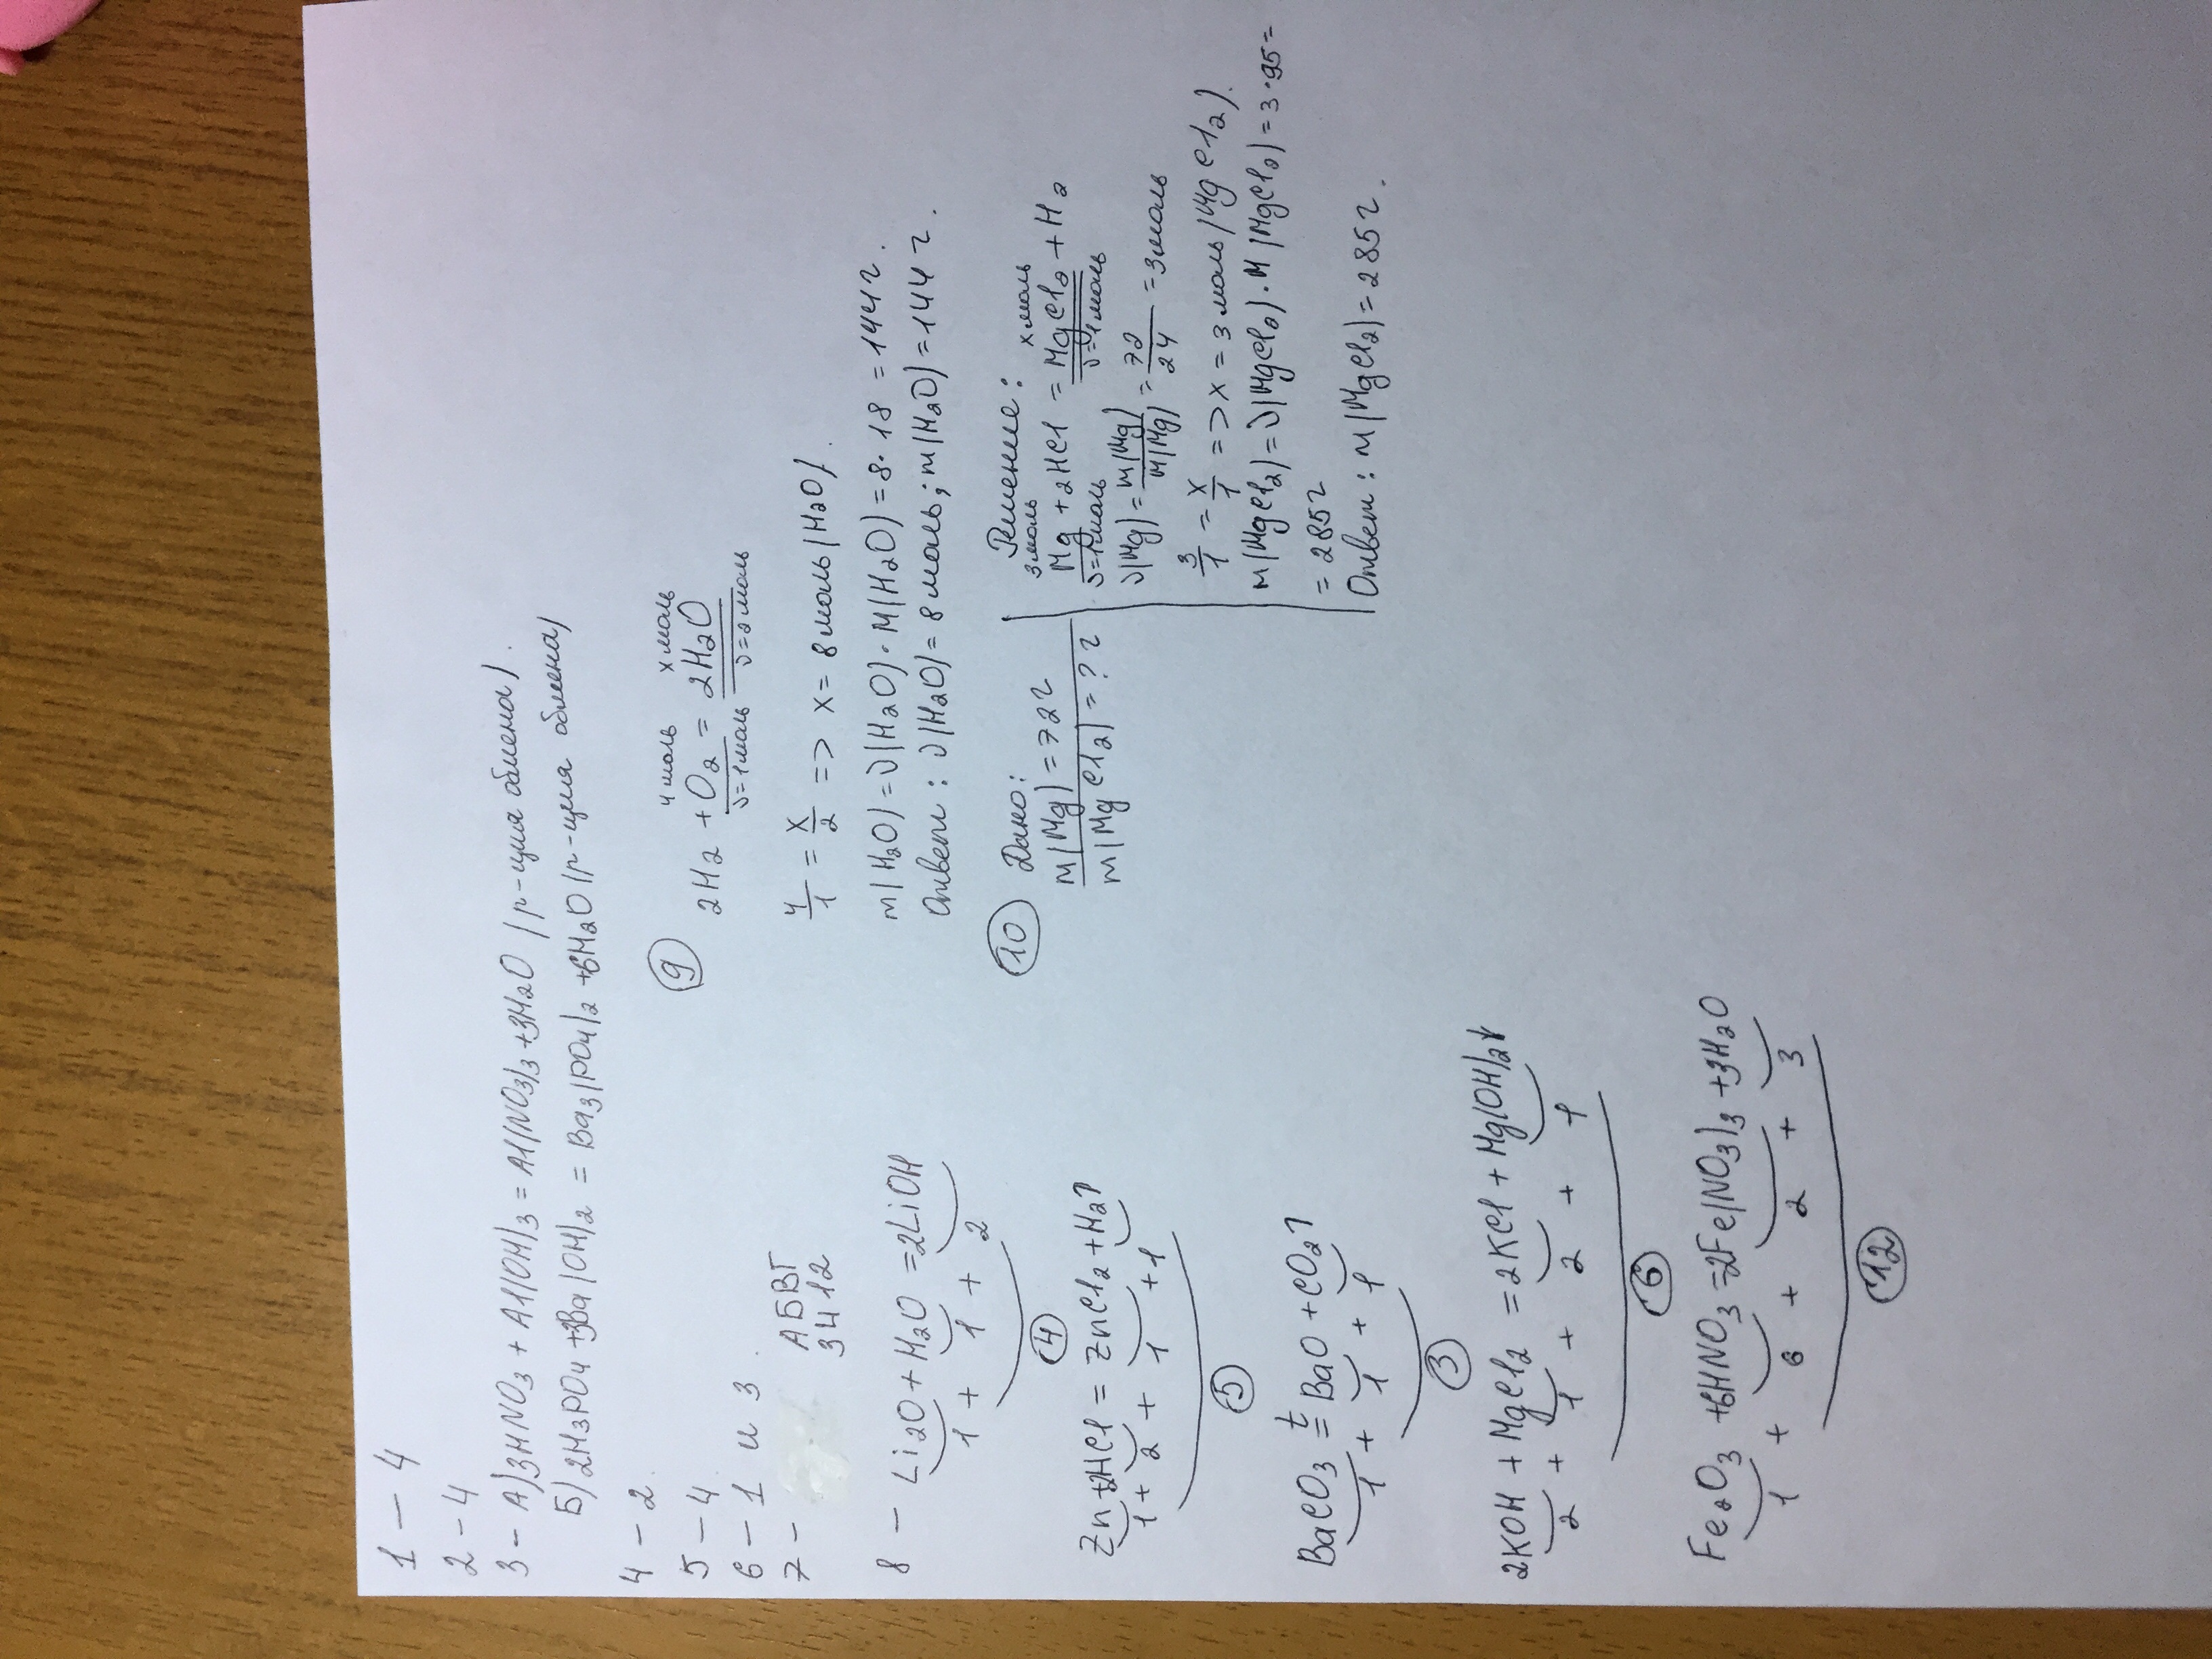 1 — 4
2 – 4
3 – А) 3HNO3 + Al(OH)3 = Al(NO3)3 + 3H2O (р-ция обмена).
Б) 2H3PO4 + 3Ba(OH)2 = Ba3(PO4)2 + 6H2O (р-ция обмена)
4 – 2.
5 – 4.
6 – 1 и 3.
7 – АБВГ
3412
8 – Li2O + H2O = 2LiOH
1 + 1 + 2
4
Zn + 2HCl = ZnCl2 + H2↑
1 + 2 + 1 + 1
5
BaCO3 =t= BaO + CO2↑
1 + 1 + 1
3
2KOH + MgCl2 = 2KCl + Mg(OH)2↓
2 + 1 + 2 + 1
6
Fe2O3 + 6HNO3 = 2Fe(NO3)3 + 3H2O
1 + 6 + 2 + 3
12
9
4 моль x моль
2H2 + O2 = 2H2O
ν=1моль ν=2моль
4/1 = x/2 => x = 8 моль (H2O).
m(H2O) = ν(H2O) · M(H2O) = 8 · 18 = 144г.
Ответ: ν(H2O) = 8 моль; m(H2O) = 144 г.
10 Дано:
m(Mg) = 72г
m(MgCl2) = ? г
Решение:
3моль x моль
Mg + 2HCl = MgCl2 + H2
ν=1моль ν=1моль
ν(Mg) = m(Mg)/M(Mg) = 72/24 = 3моль
3/1 = x/1 => x = 3 моль (MgCl2).
m(MgCl2) = ν(MgCl2) · M(MgCl2) = 3 · 95 =
= 285г
Ответ: m(MgCl2) = 285г.